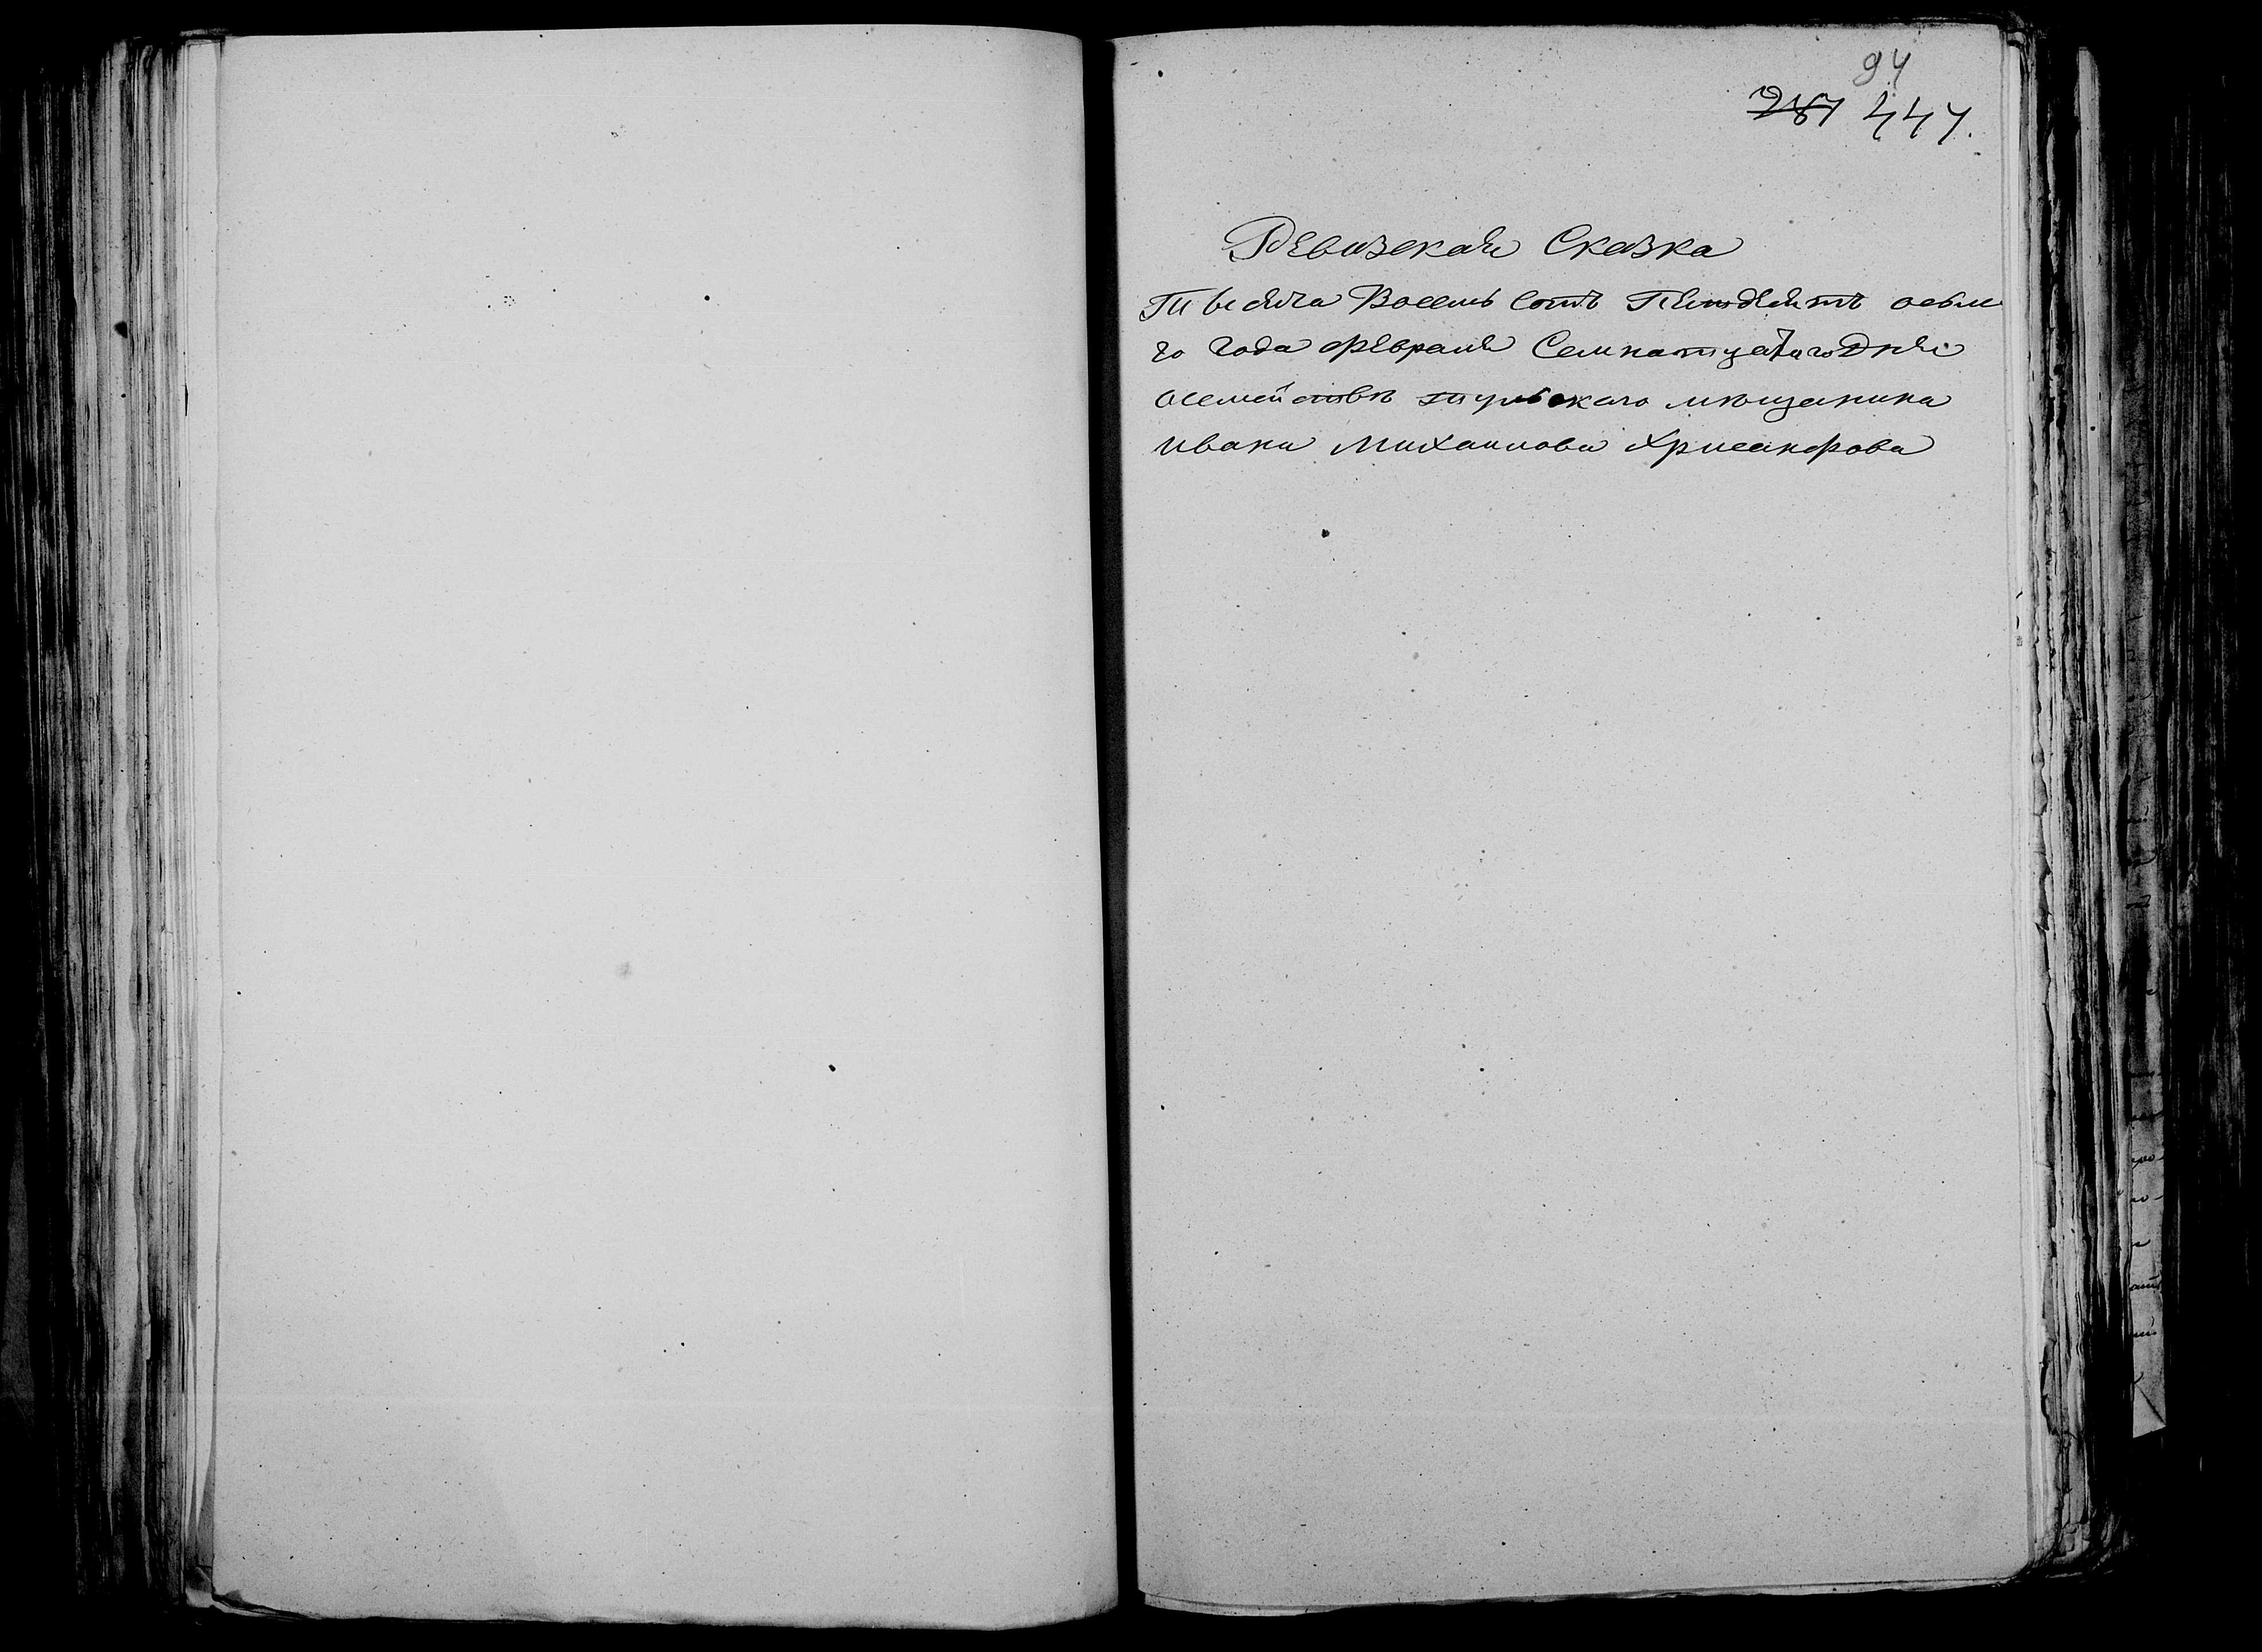 94
287 447.
Ревизская Сказка
Тысяча Восемь сотъ Пендеятъ осьмо
го года февраля Семнатцатаго Дня
осемействе тульскаго мещанина
ивана Михаилова Хрисанфова